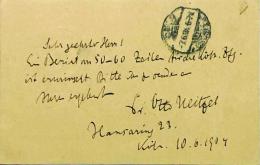 Sehr geehrter Herr!
Ein Bericht von 50-60 Zeilen für die Köln. Ztg.
ist erwünscht. Bitte
Ihr ergebener
Dr. Otto Neitzel
Hansaring 23.
Köln. 10.6.1904